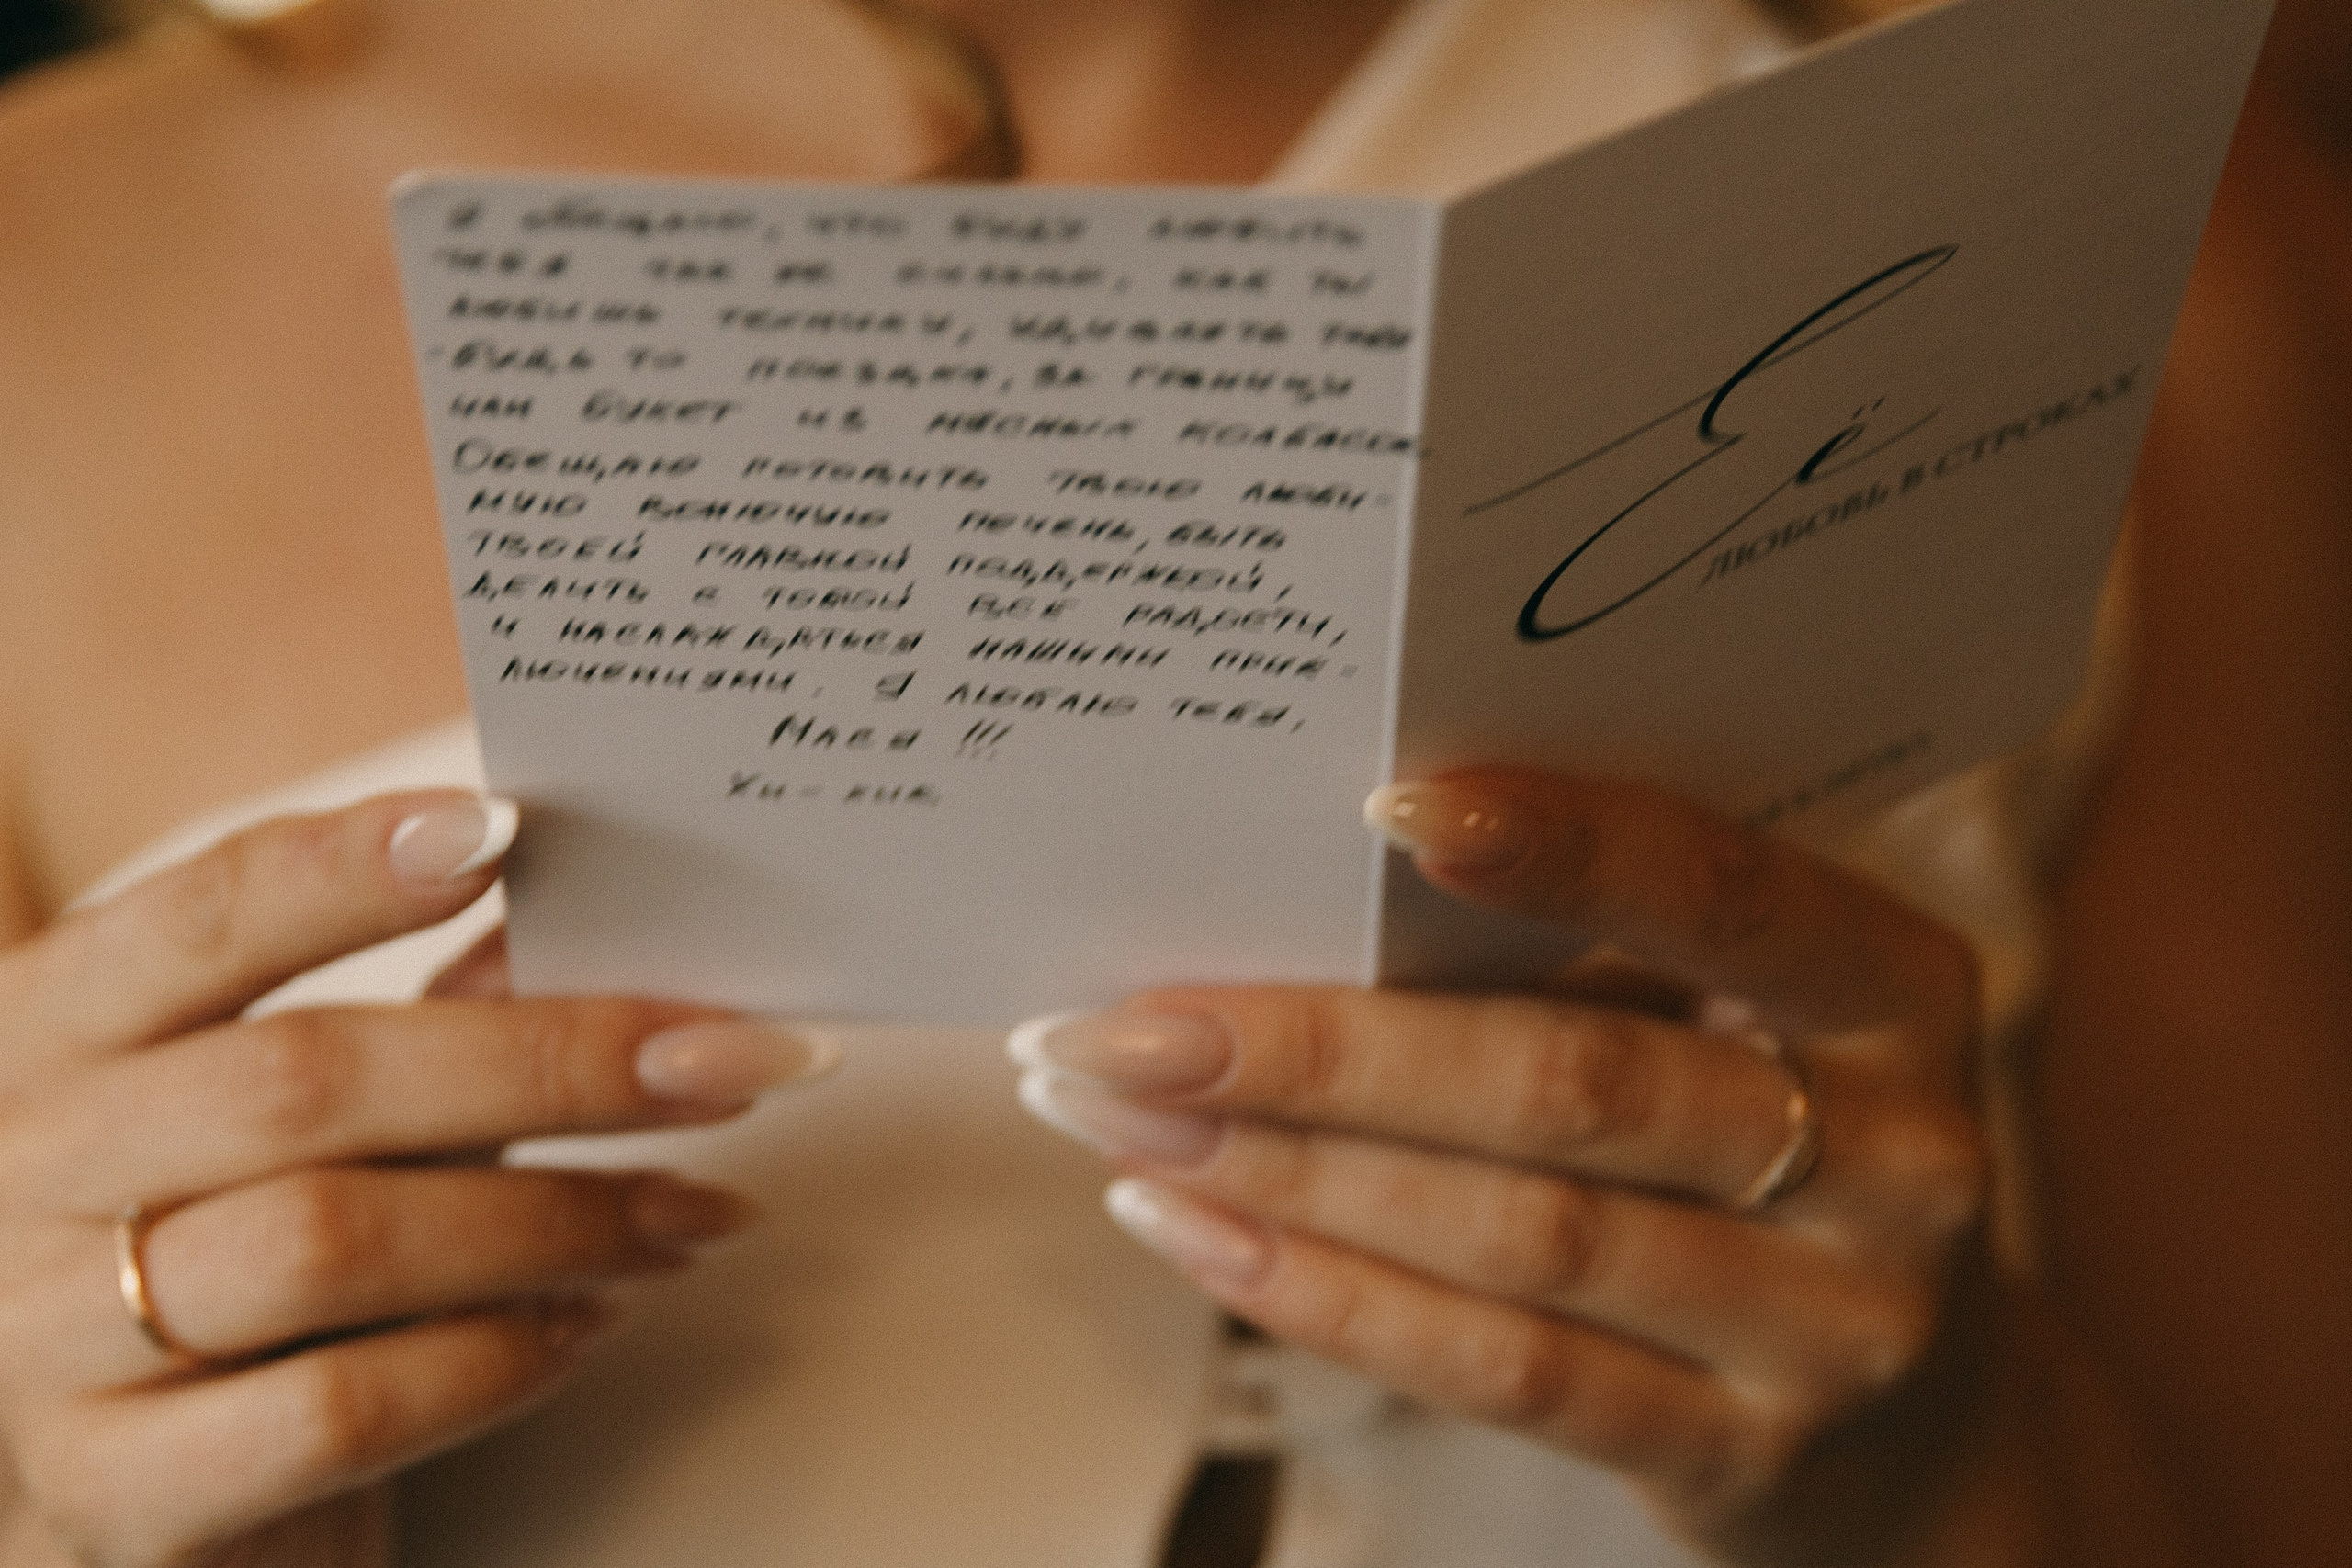 Я обещаю, что буду любить
тебя так же сильно, как ты
любишь технику, удивлять тебя
- будь то поездка, за границу
или букет из мясных колбасок.
Обещаю готовить твою люби-
мую вонючую печень, быть
твоей главной поддержкой,
делить с тобой все радости,
и наслаждаться нашими прик-
лючениями. Я люблю тебя,
Мася !!!
Хи - хик
Её
ЛЮБОВЬ В СТРОКАХ